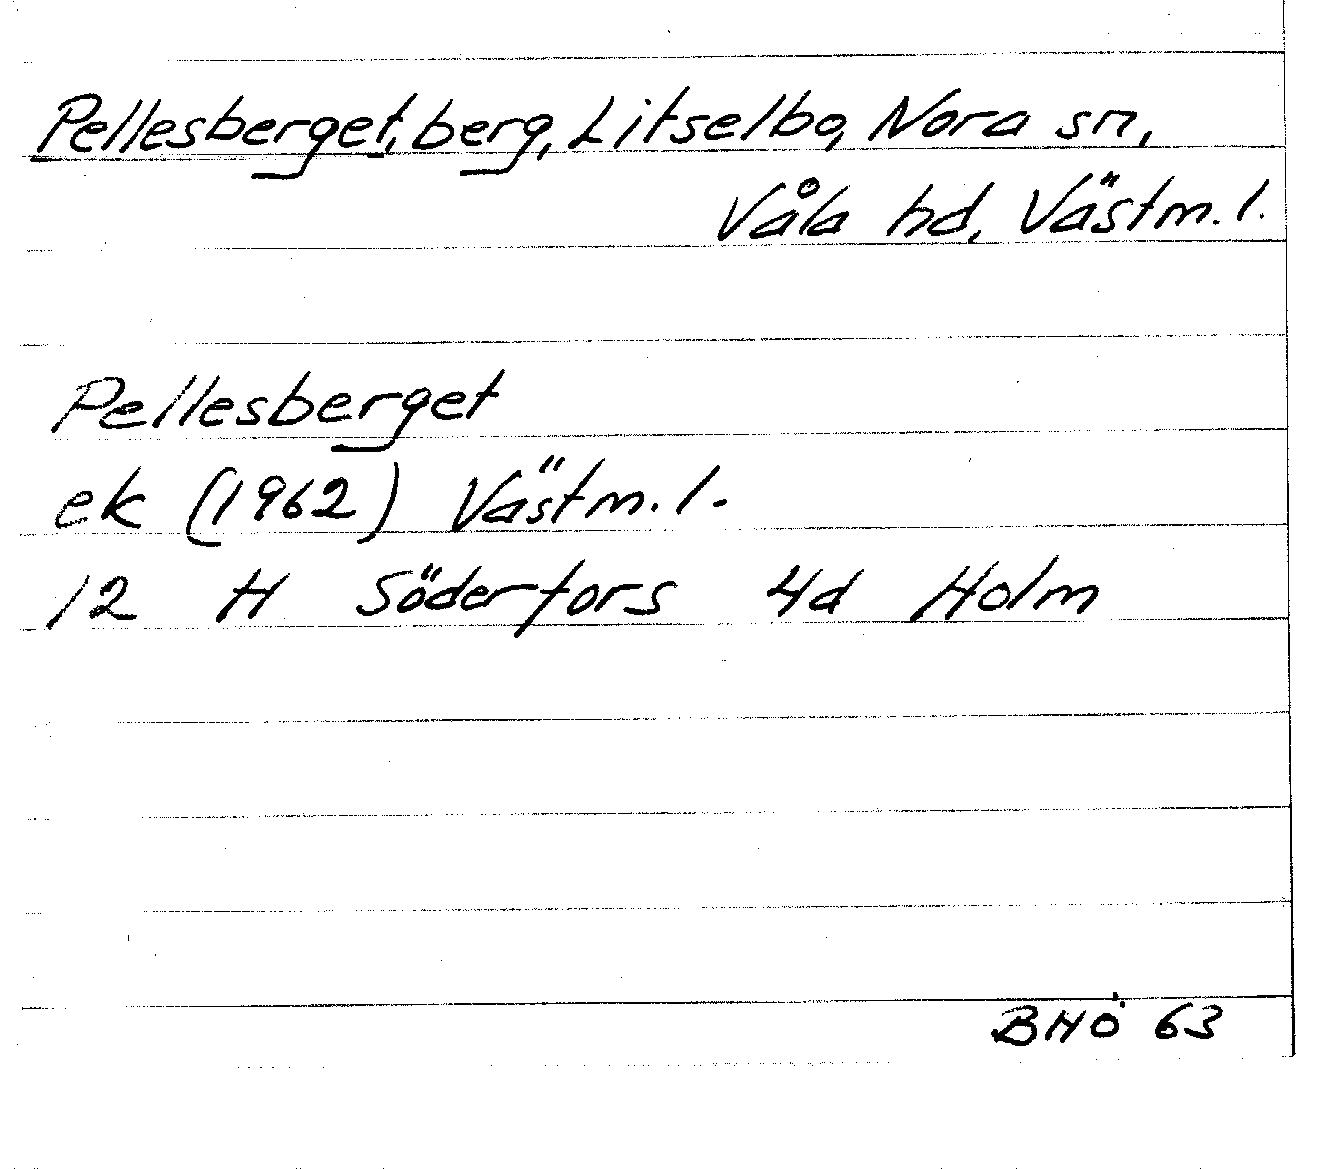 Pellesberget, berg, Litselbo, Nora sn,
Våla hd, Västm. l.
Pellesberget
ek (1962) Västm. l.
12 H Söderfors 4d Holm
BHÖ 63